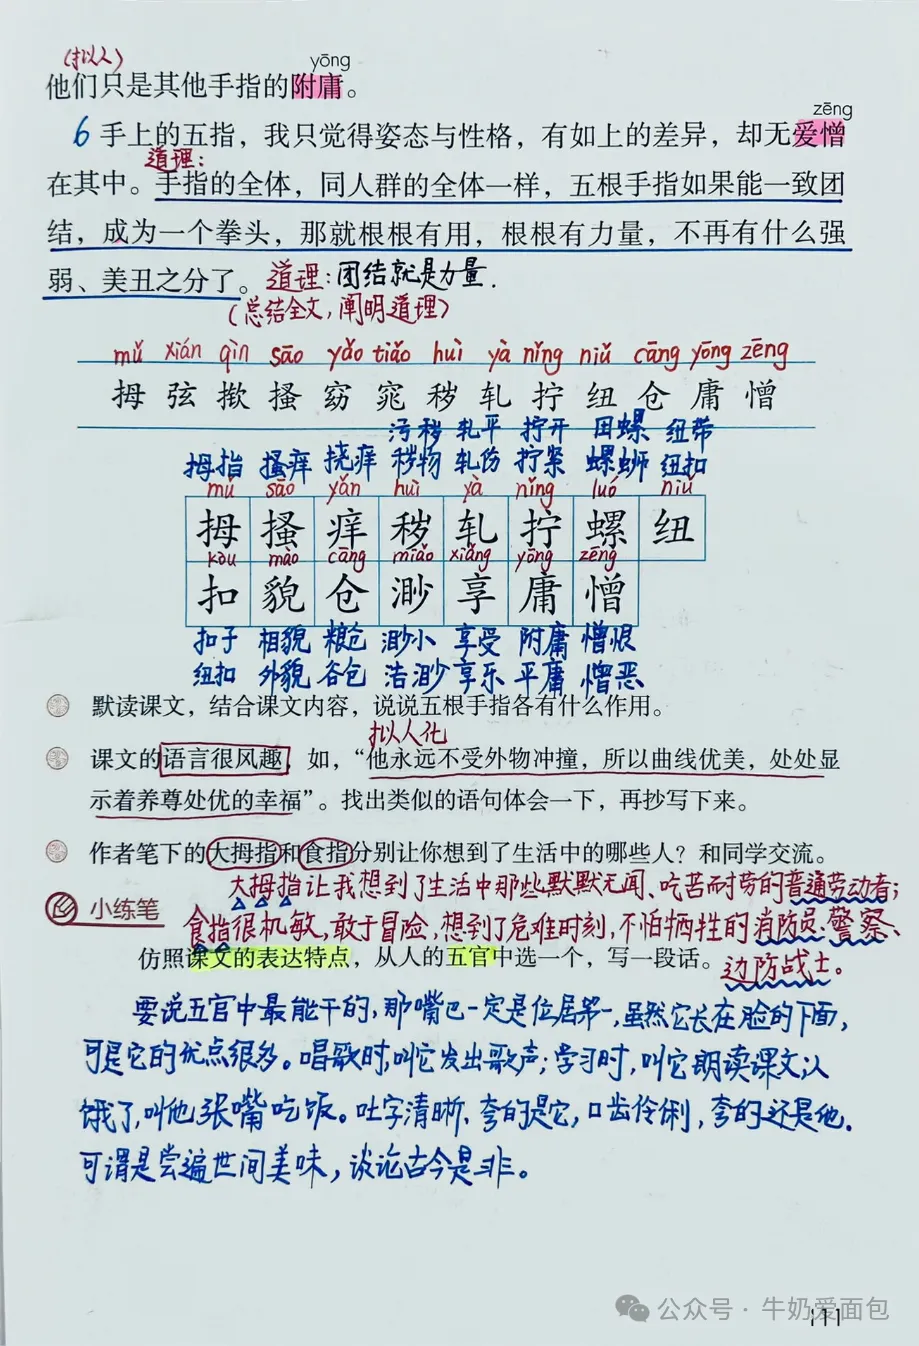 (拟人)
yōng
他们只是其他手指的附庸。
zēng
6 手上的五指，我只觉得姿态与性格，有如上的差异，却无爱憎
道理：
在其中。手指的全体，同人群的全体一样，五根手指如果能一致团
结，成为一个拳头，那就根根有用，根根有力量，不再有什么强
弱、美丑之分了。道理：团结就是力量.
(总结全文，阐明道理)
mǔ xián qìn sāo yǎo tiǎo huì yà nǐng niǔ cāng yōng zēng
拇 弦 揿 搔 窈 窕 秽 轧 拧 纽 仓 庸 憎
污秽 轧平 拧开 田螺 纽带
拇指 搔痒 挠痒 秽物 轧伤 拧紧 螺蛳 纽扣
mǔ sāo yǎn huì yà nǐng luó niǔ
拇 搔 痒 秽 轧 拧 螺 纽
kòu mào cāng miǎo xiǎng yōng zēng
扣 貌 仓 渺 享 庸 憎
扣子 相貌 粮仓 渺小 享受 附庸 憎恨
纽扣 外貌 谷包 浩渺 享乐 平庸 憎恶
默读课文，结合课文内容，说说五根手指各有什么作用。
拟人化
课文的语言很风趣，如，“他永远不受外物冲撞，所以曲线优美，处处显
示着养尊处优的幸福”。找出类似的语句体会一下，再抄写下来。
作者笔下的大拇指和食指分别让你想到了生活中的哪些人？和同学交流。
大拇指让我想到了生活中那些默默无闻、吃苦而耐劳的普通劳动者；
小练笔
食指很机敏，敢于冒险，想到了危难时刻，不怕牺牲的消防员、警察、
仿照课文的表达特点，从人的五官中选一个，写一段话。
边防战士。
要说五官中最能干的，那嘴巴一定是位居第一，虽然它长在脸的下面，
可是它的优点很多。唱歌时，叫它发出歌声；学习时，叫它朗读课文，认
饿了，叫他张嘴吃饭。吐字清晰，夸的是它，口齿伶俐，夸的还是他.
可谓是尝遍世间美味，谈论古今是非。
公众号·牛奶爱面包
111